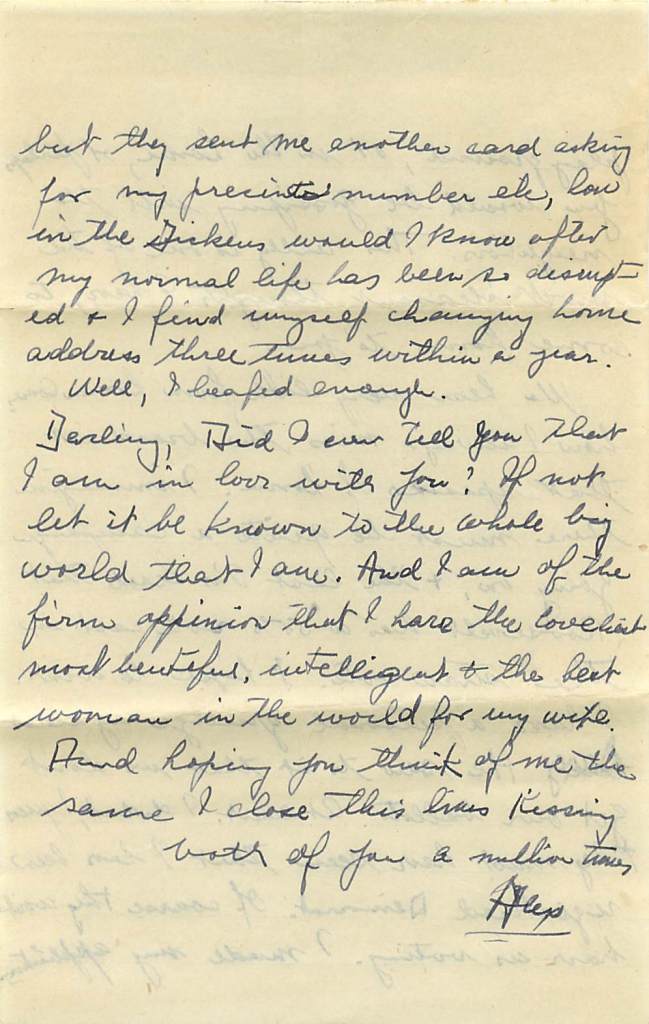 but they sent me another card asking
for my precints number etc, how
in the Dickens would I know after
my normal life has been so disrupt-
ed & I find myself changing home
address three times within a year.
Well, I beafed enough.
Darling, Did I ever tell you that
I am in love with you? If not
let it be known to the whole big
world that I am. And I am of the
firm oppinion that I have the loveliest
most beutiful, intelligent & the best
woman in the world for my wife.
And hoping you think of me the
same I close this lines Kissing
both of you a million times
Alex